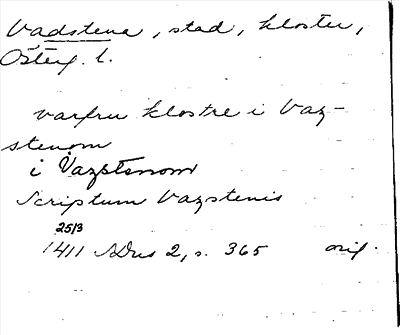 Vadstena, stad, kloster,
Österg. l.
varfru klostre i Vaz-
stenom
i Vazstenom
Scriptum Vazstenis
25/3
1411 SDns 2, s. 365 orig.